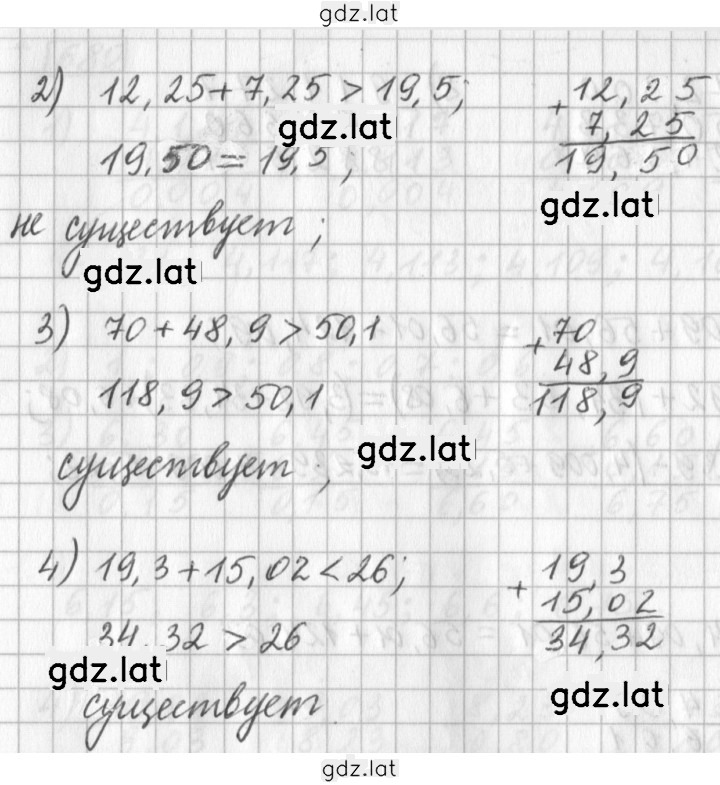 gdz.lat
2) 12,25+7,25>19,5; +12,25
gdz.lat 7,25
19,50=19,5; 19,50
не существует; gdz.lat
gdz.lat
3) 70+48,9>50,1 +70
48,9
118,9>50,1 118,9
существует; gdz.lat
4) 19,3+15,02<26; +19,3
15,02
34,32>26 34,32
gdz.lat
существует gdz.lat
gdz.lat